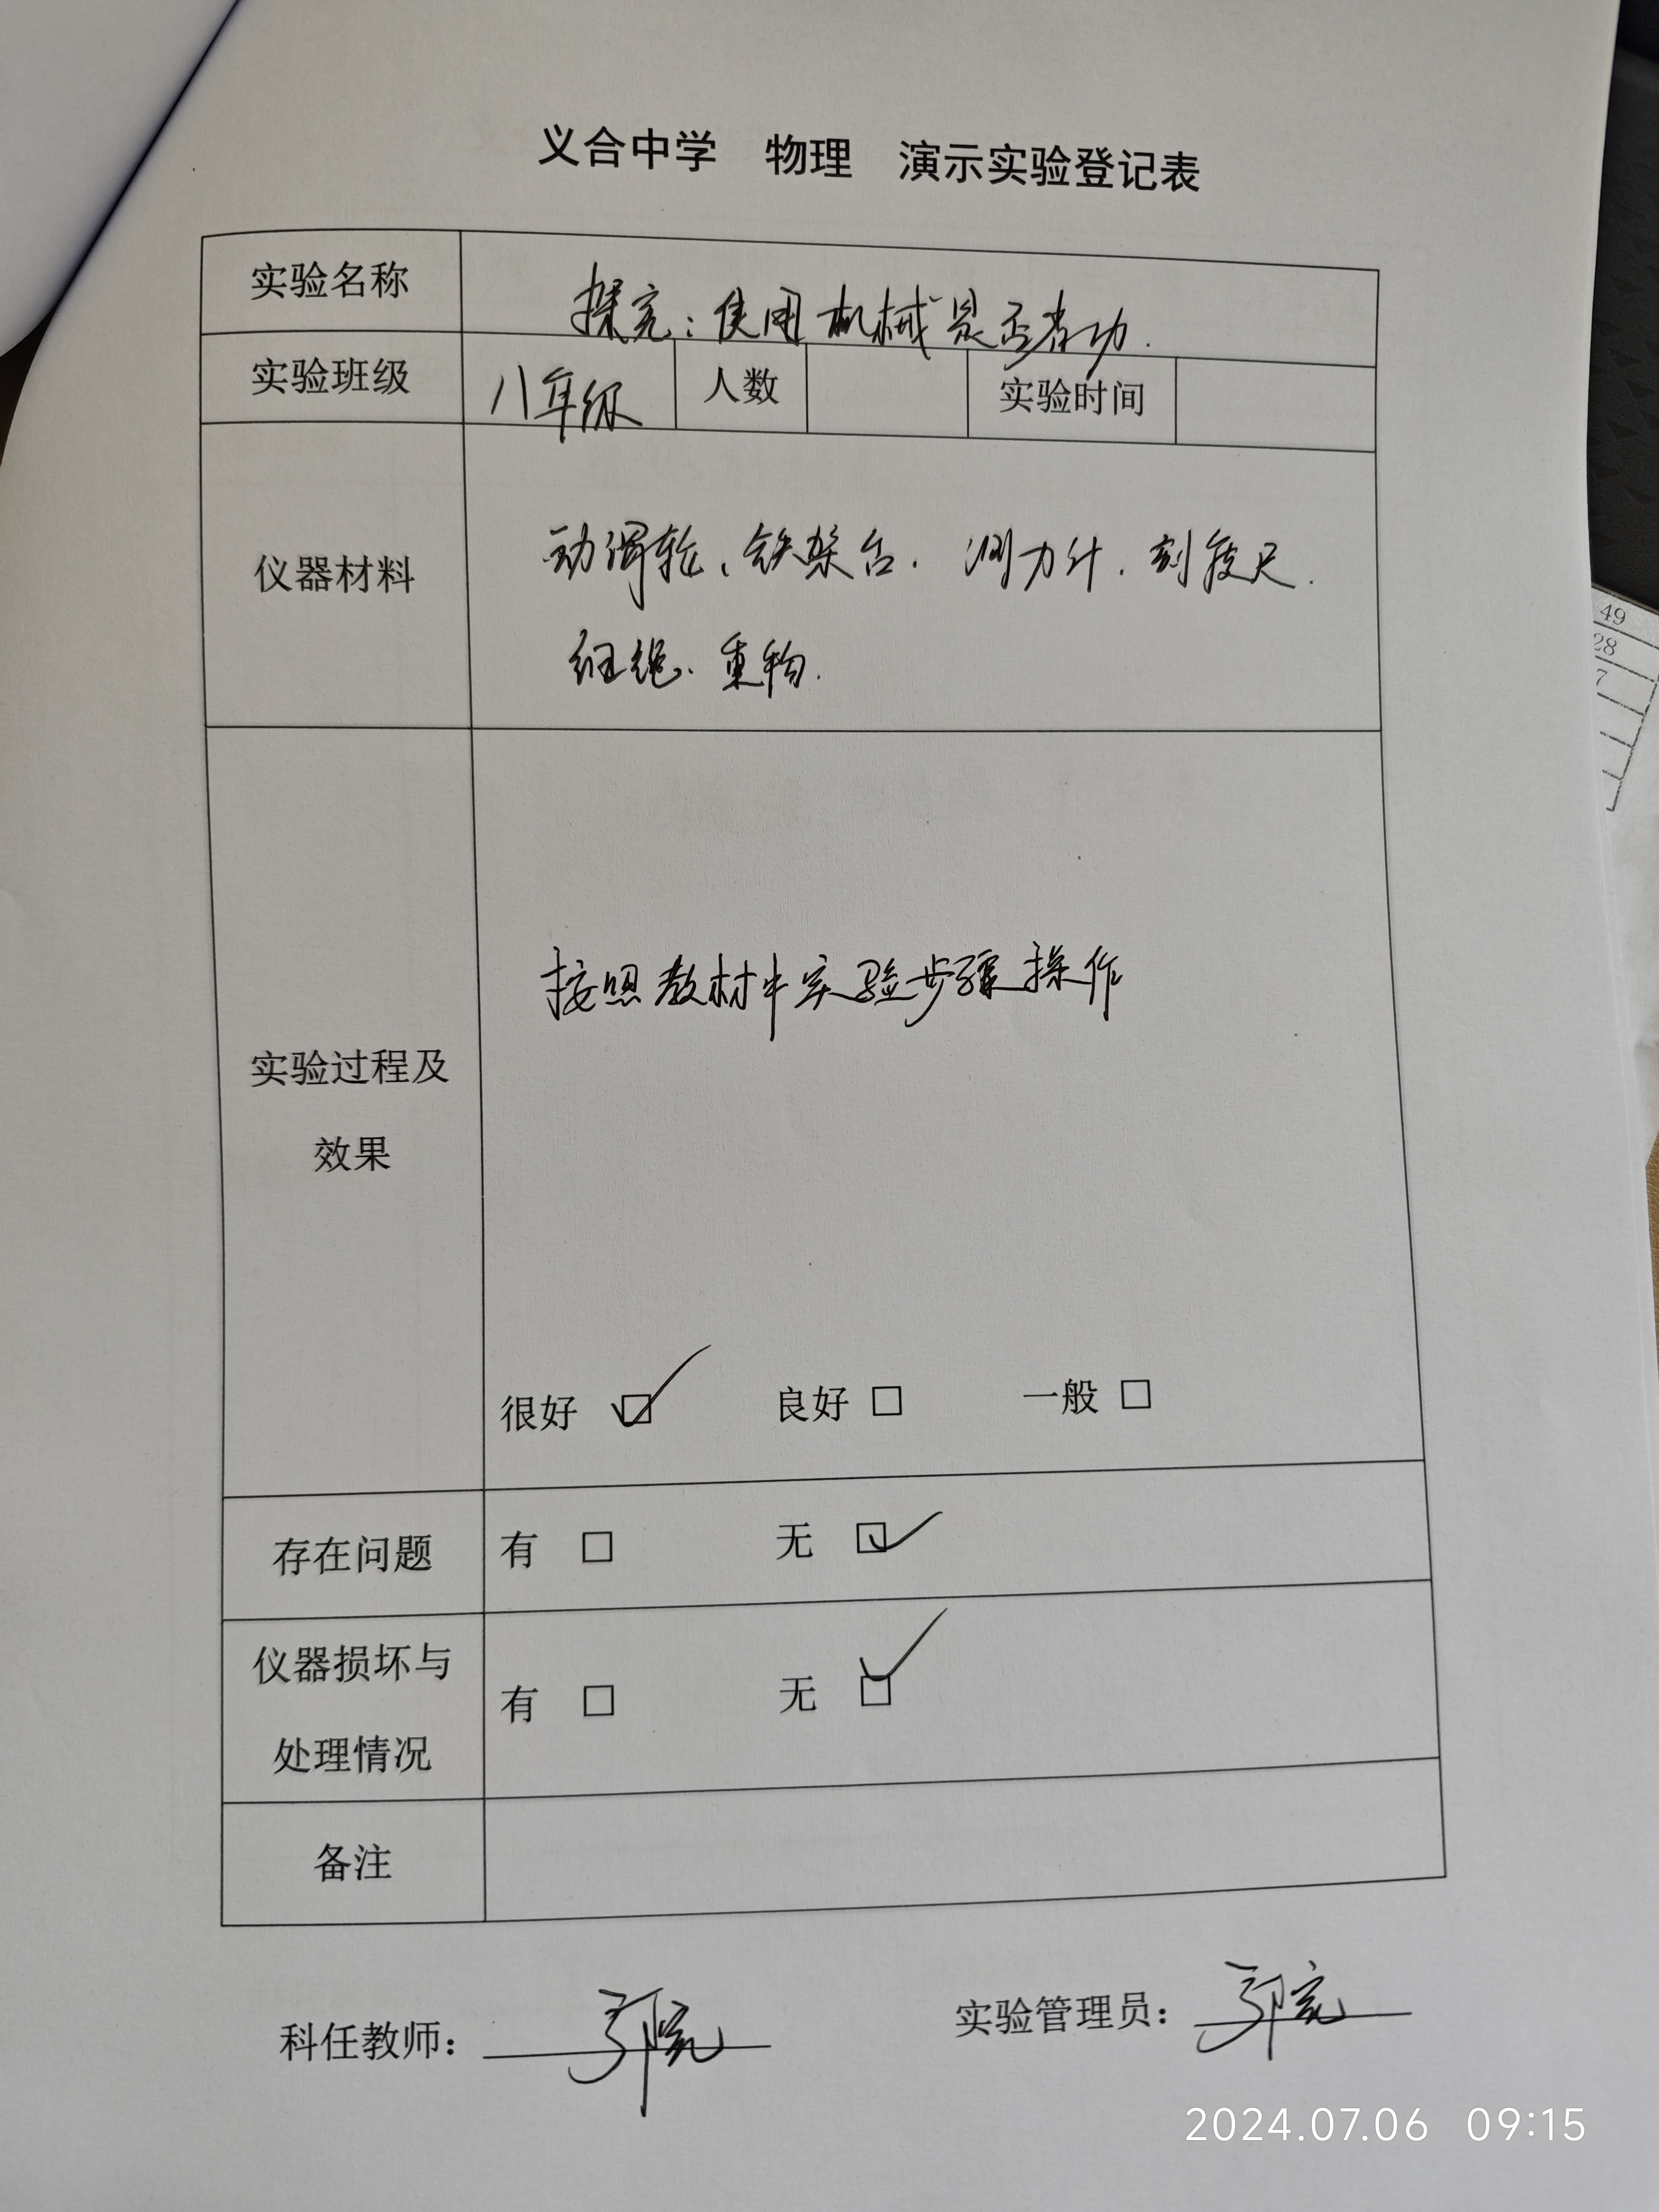 义合中学 物理 演示实验登记表
实验名称 探究：使用机械是否省功.
实验班级 八年级 人数 实验时间
仪器材料 动滑轮、铁架台. 测力计. 刻度尺.
细绳. 重物.
按照教材中实验步骤操作
实验过程及
效果
很好 ☑ 良好 □ 一般 □
存在问题 有 □ 无 ☑
仪器损坏与
有 □ 无 ☑
处理情况
备注
科任教师： 实验管理员：
49
28
7
2024.07.06 09:15